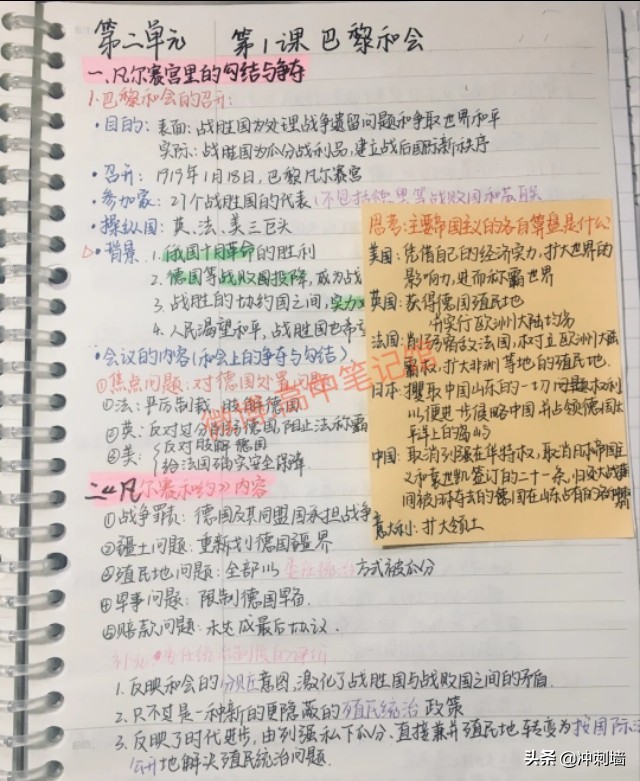 第二单元 第1课 巴黎和会
一、凡尔赛宫里的勾结与争夺
1.巴黎和会的召开:
·目的:表面:战胜国为处理战争遗留问题和争取世界和平
实际:战胜国为瓜分战利品,建立战后国际新秩序
·召开:1919年1月18日,巴黎凡尔赛宫
·参加家:27个战胜国的代表(不包括德奥等战败国和苏联
·操纵国:英、法、美三巨头
·背景 1.俄国十月革命的胜利
2.德国等战败国投降,成为战
3.战胜的协约国之间,实力
4.人民渴望和平,战胜国也希
·会议的内容(和会上的争夺与勾结)
①焦点问题:对德国处置问题
①法:严厉制裁,肢解德国
②英:反对过分削弱德国,阻止法称霸
③美:反对肢解德国
给法国确实安全保障
二《凡尔赛和约》内容
①战争罪责:德国及其同盟国承担战争
②疆土问题:重新划德国疆界
③殖民地问题:全部以委任统治方式被瓜分
④军事问题:限制德国军备.
⑤赔款问题:未达成最后协议.
委任统治制度的评价
1.反映和会的分赃意图,激化了战胜国与战败国之间的矛盾.
2.只不过是一种新的更隐蔽的殖民统治政策
3.反映了时代进步,由列强私下瓜分、直接兼并殖民地转变为按国际法
公开地解决殖民统治问题.
思考:主要帝国主义的各自算盘是什么
美国:凭借自己的经济实力,扩大世界的
影响力,进而称霸世界
英国:获得德国殖民地
实行欧洲大陆均势
法国:削弱宿敌法国,树立欧洲大陆
霸权,扩大非洲等地的殖民地.
日本:攫取中国山东的一切问题权利
以便进步侵略中国并占领德国太
平洋上的岛屿
中国:取消列强在华特权,取消凡日本帝国主
义和袁世凯签订的二十一条,归还大战期
间被日本夺去的德国在山东占有的各种
意大利:扩大领土
微博:高中笔记馆
头条 @冲刺墙